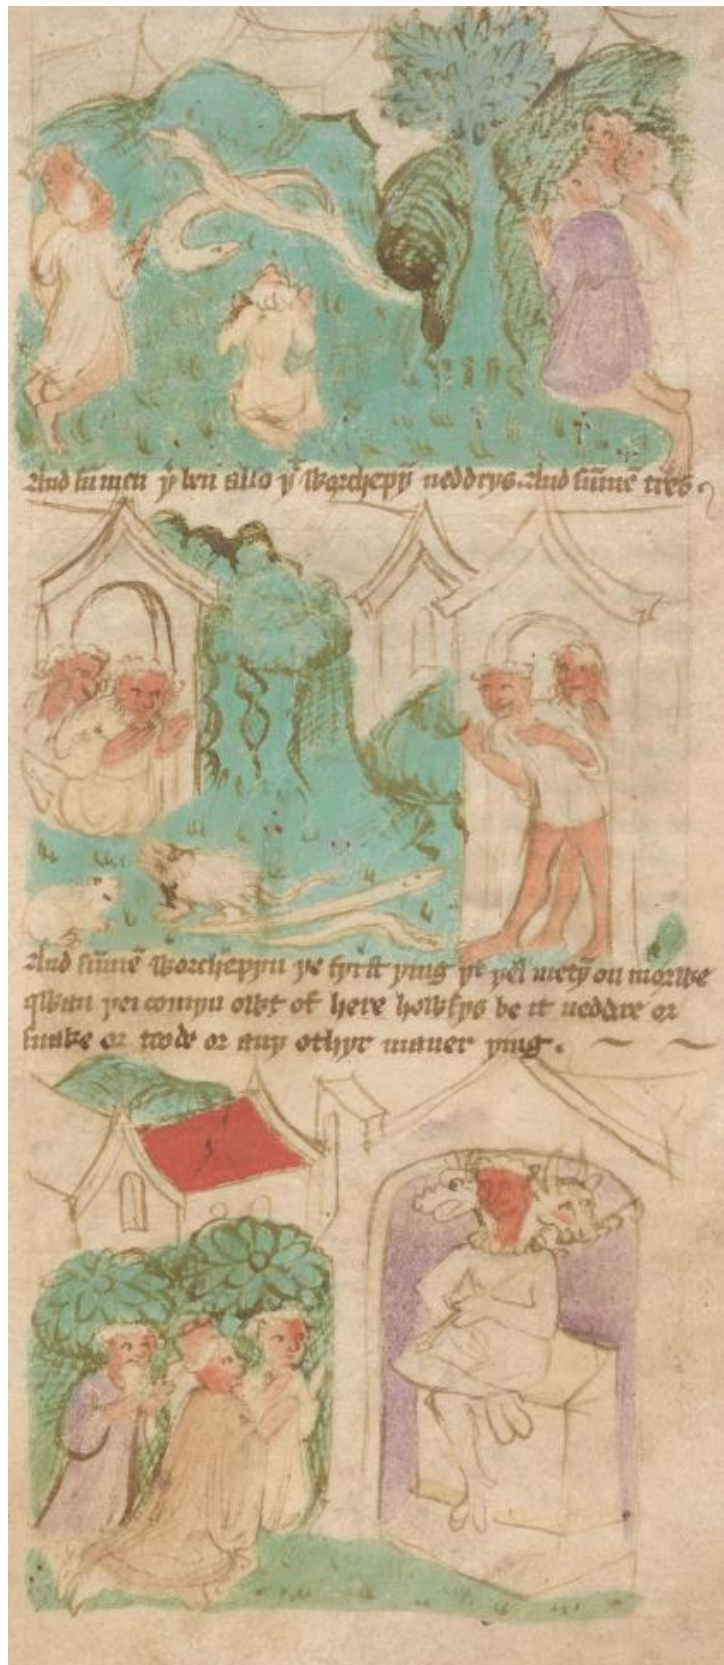 And sūmen yͭ ben also yͭ worchepyn̄ neddrys. And sūmē trees.
And sūmē worchepyn ye fyrst ying yͭ yei metyn̄ on morwe
qwan yei comyn owt of here howsys be it neddre or
snake or tode or any othyr maner ying.